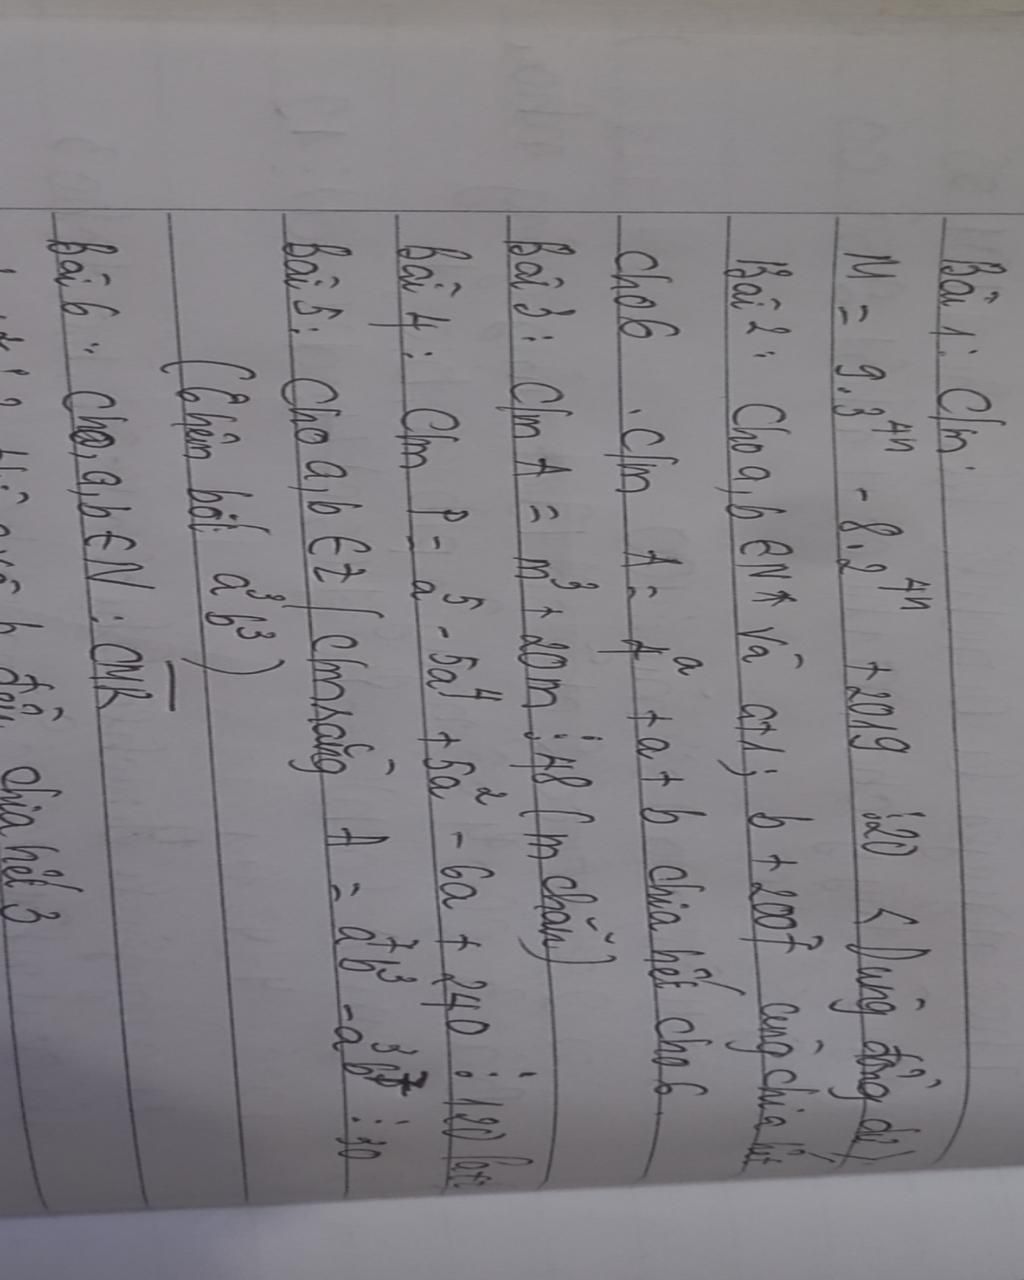 Bài 1: C/m:
M = 9.3^4n - 8.2^4n + 2019 ⋮ 20 (Dùng đồng dư)
Bài 2: Cho a, b ∈ N* và a+1; b+2007 cùng chia hết
cho 6. C/m A = 4^a + a + b chia hết cho 6
Bài 3: C/m A = m^3 + 20m ⋮ 48 (m chẵn)
Bài 4: C/m P = a^5 - 5a^4 + 5a^2 - 6a + 240 ⋮ 120
Bài 5: Cho a, b ∈ Z / C/m rằng A = a^7b^3 - a^3b^7 ⋮ 30
(Thêm bớt a^3b^3)
Bài 6: Cho, a, b ∈ N: CMR
b đều chia hết 3